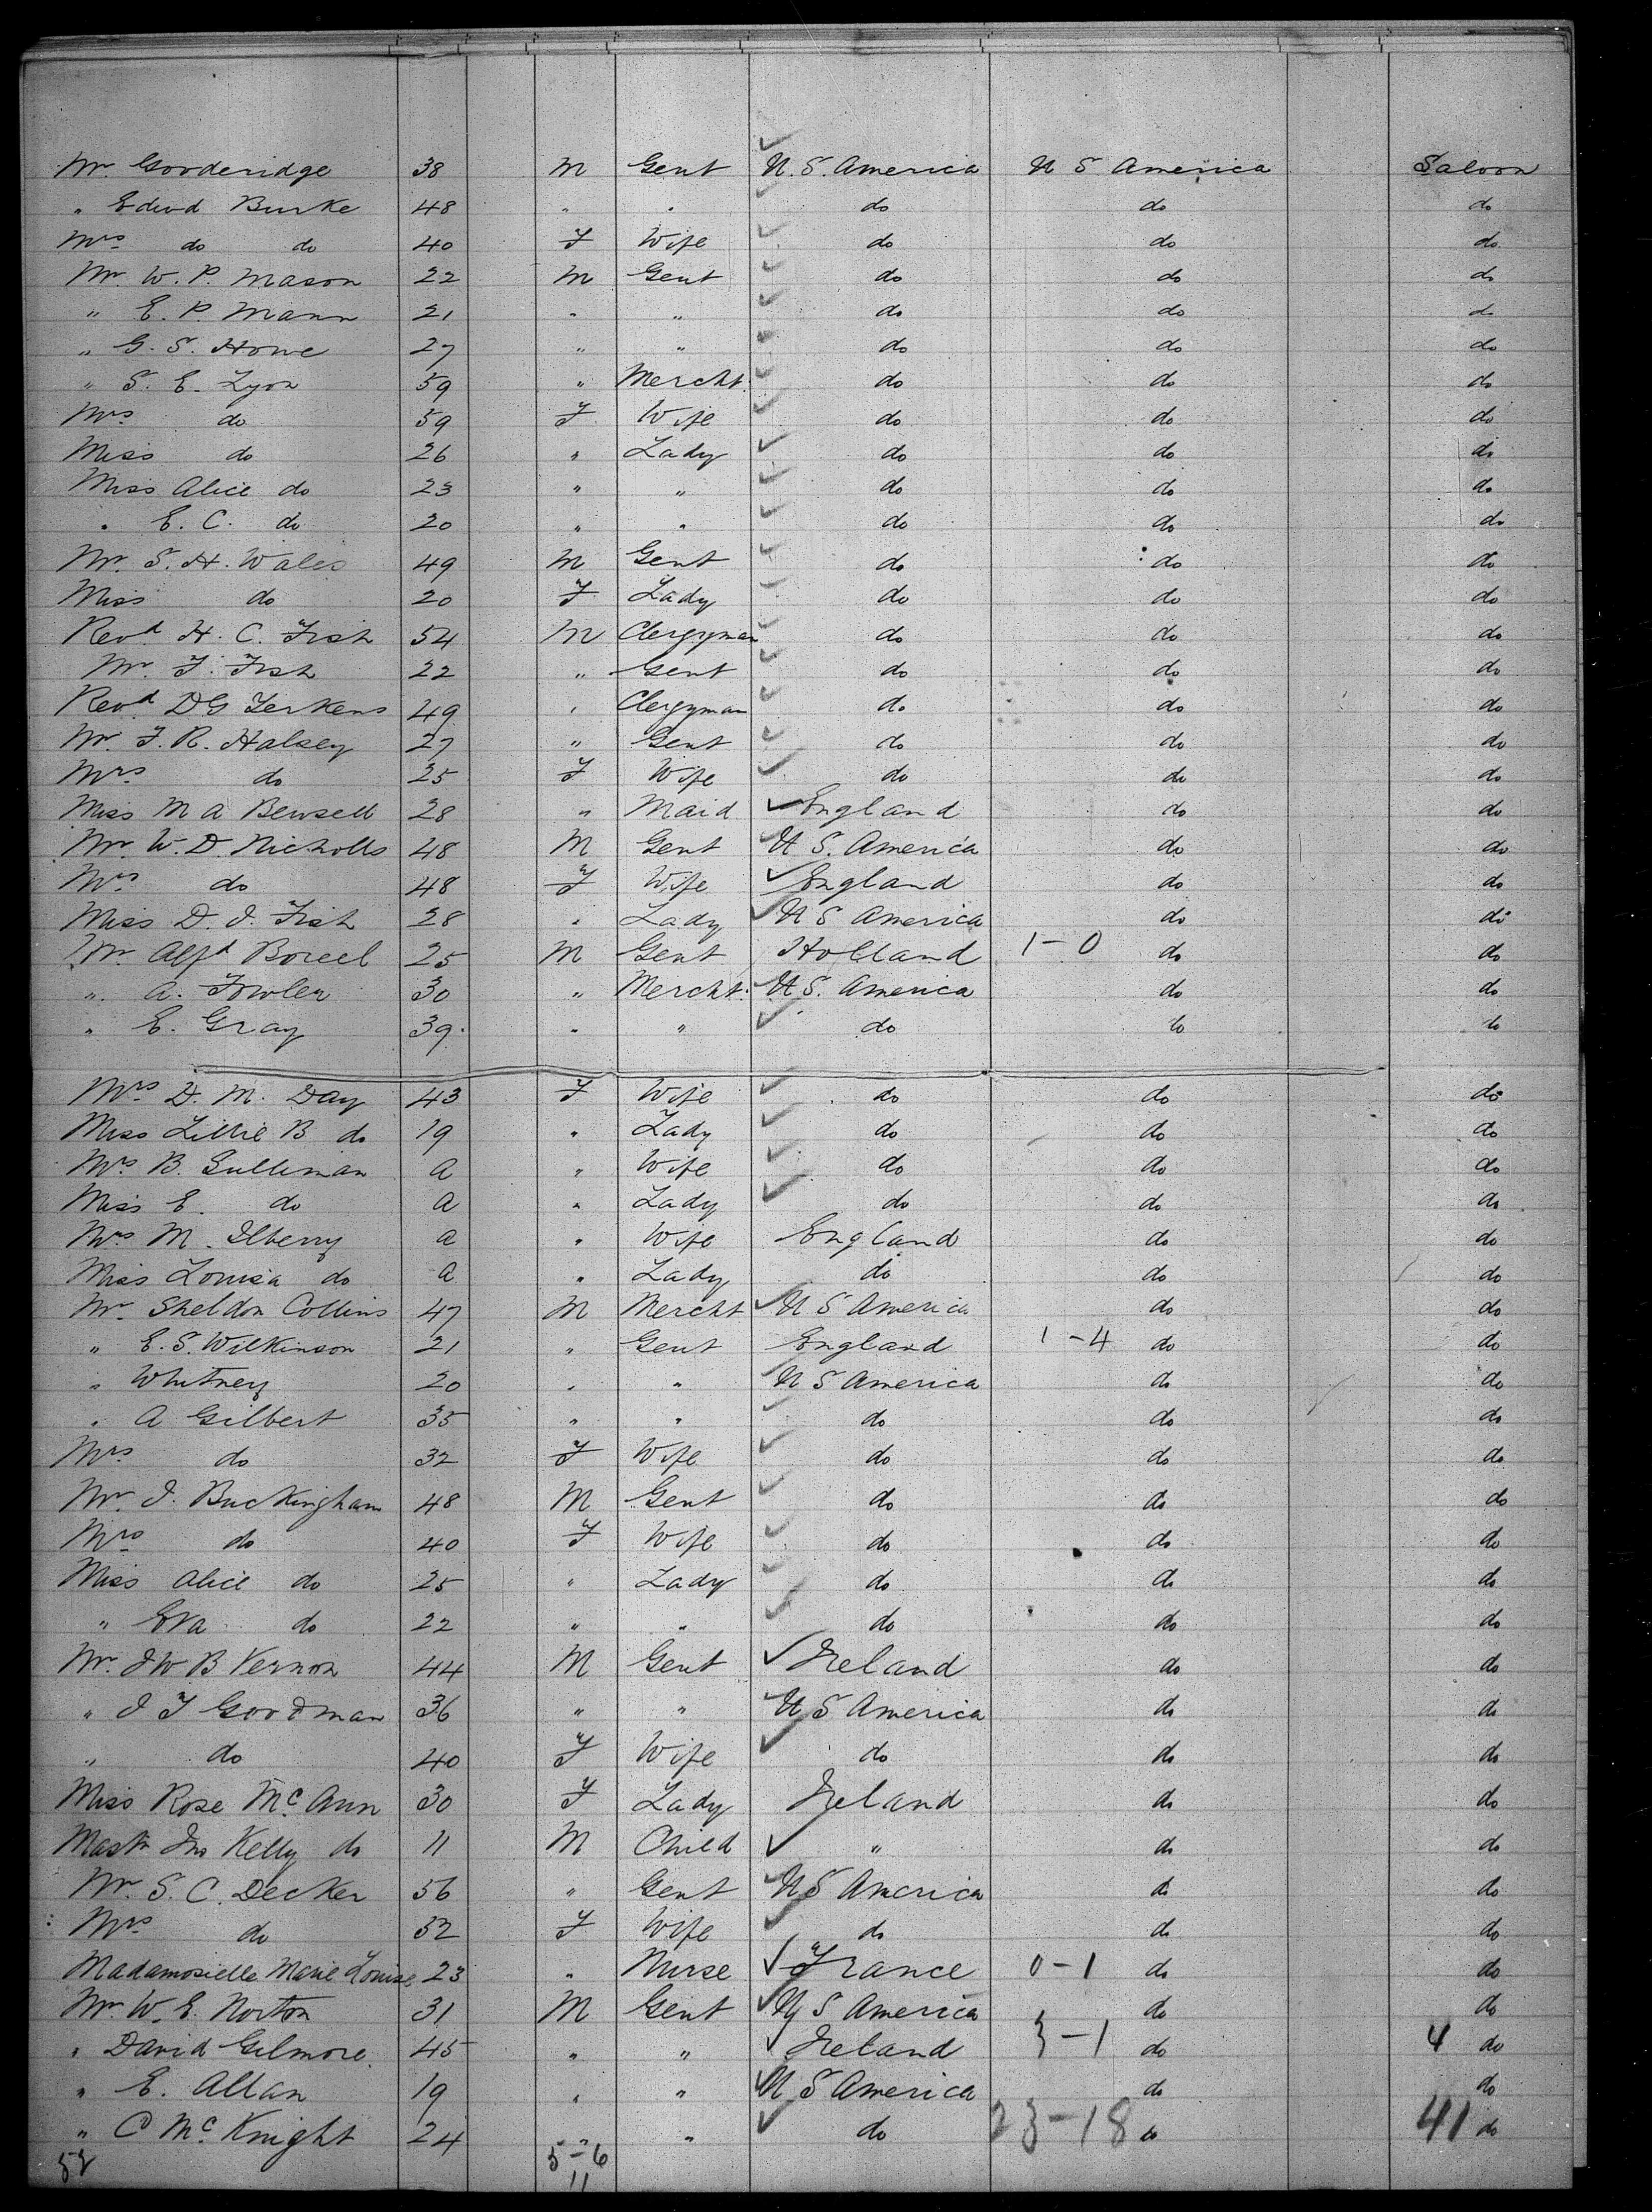 Mr Gooderidge 38 M Gent U.S. America U S America Saloon
" Edwd Burke 48 " " do do do
Mrs do do 40 F Wife do do do
Mr W. P. Mason 22 M Gent do do do
" E. P. Mann 21 " " do do do
" G. S. Howe 27 " " do do do
" S. E. Lyon 59 " Mercht. do do do
Mrs do 59 F Wife do do do
Miss do 26 " Lady do do do
Miss Alice do 23 " " do do do
" E. C. do 20 " " do do do
Mr. S. H. Wales 49 M Gent do do do
Miss do 20 F Lady do do do
Revd H. C. Fish 54 M Clergyman do do do
Mr. F. Fish 22 " Gent do do do
Revd D G Yerkens 49 " Clergyman do do do
Mr. F. R. Halsey 27 " Gent do do do
Mrs do 25 F Wife do do do
Miss M A Bewsell 28 " Maid England do do
Mr. W. D. Nicholls 48 M Gent U S. America do do
Mrs do 48 F Wife England do do
Miss D. J. Fish 28 " Lady U S America do do
Mr Alfd Boreel 25 M Gent Holland 1-0 do do
" A. Fowler 30 " Mercht. U S. America do do
" E. Gray 39. " " do do do
Mrs D. M. Day 43 F Wife do do do
Miss Lillie B do 19 " Lady do do do
Mrs B. Sulliman a " Wife do do do
Miss E. do a " Lady do do do
Mrs M. Ilberry a " Wife England do do
Miss Louisa do a " Lady do do do
Mr Sheldon Collins 47 M Mercht U S America do do
" E. S. Wilkinson 21 " Gent England 1-4 do do
" Whitney 20 " " U S America do do
" A Gilbert 35 " " do do do
Mrs do 32 F Wife do do do
Mr. J. Buckingham 48 M Gent do do do
Mrs do 40 F Wife do do do
Miss Alice do 25 " Lady do do do
" Eva do 22 " " do do do
Mr. J W B Vernon 44 M Gent Ireland do do
" J T Goodman 36 " " U S America do do
" do 40 F Wife do do do
Miss Rose McAnn 30 F Lady Ireland do do
Mastr Jno Kelly do 11 M Child " do do
Mr. S. C. Decker 56 " Gent U S America do do
Mrs do 32 F Wife do do do
Madamosielle Marie Louise 23 " Nurse France 0-1 do do
Mr W. E. Norton 31 M Gent U S America do do
" David Gilmore 45 " " Ireland 3-1 do 4 do
" E. Allan 19 " " U S America do do
" C McKnight 24 " " do 23-18 do 41 do
52 5-6
11